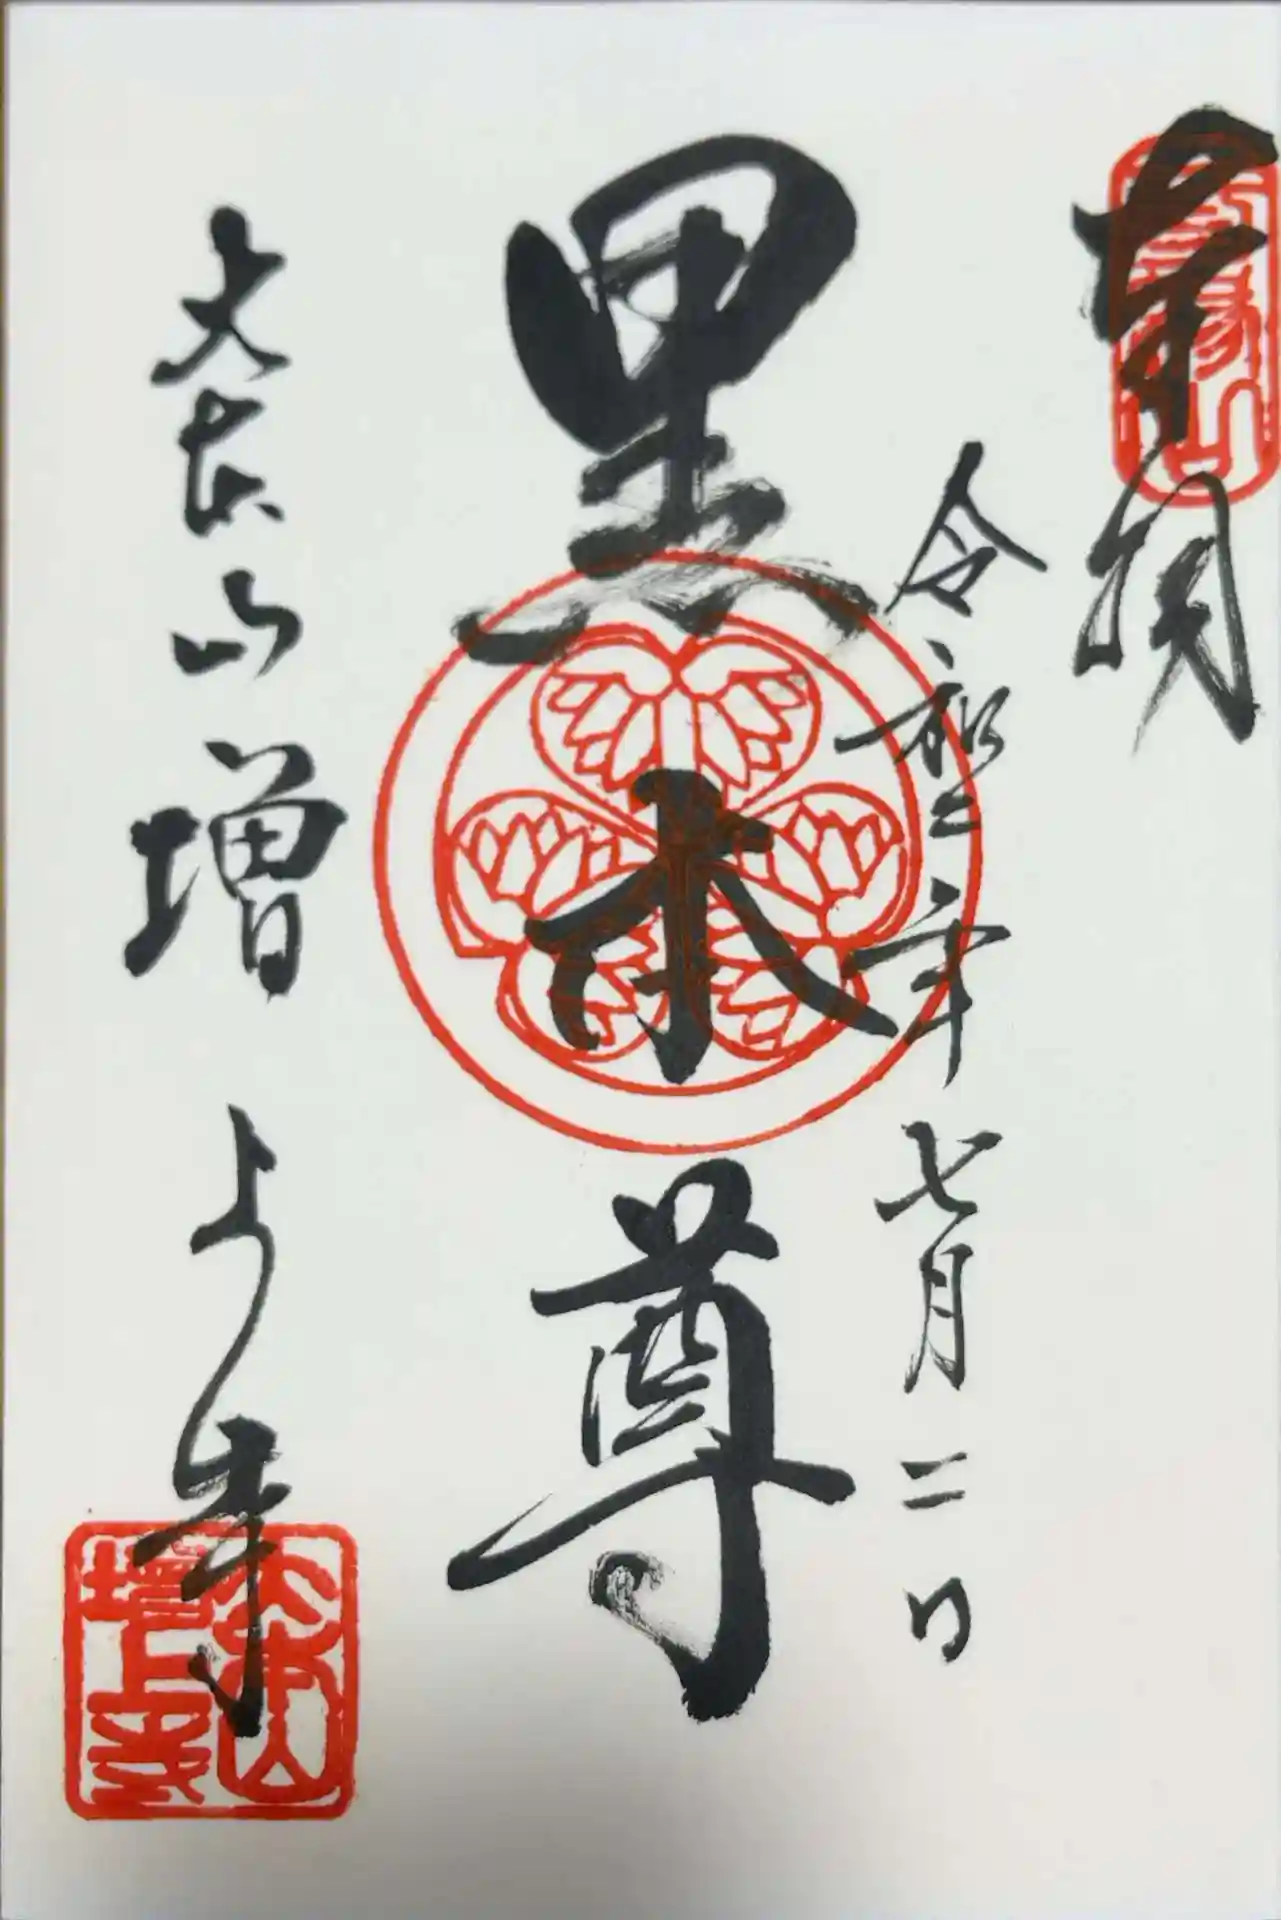 奉拝
令和二年七月二日
黒本尊
大本山増上寺
大本山
増上寺